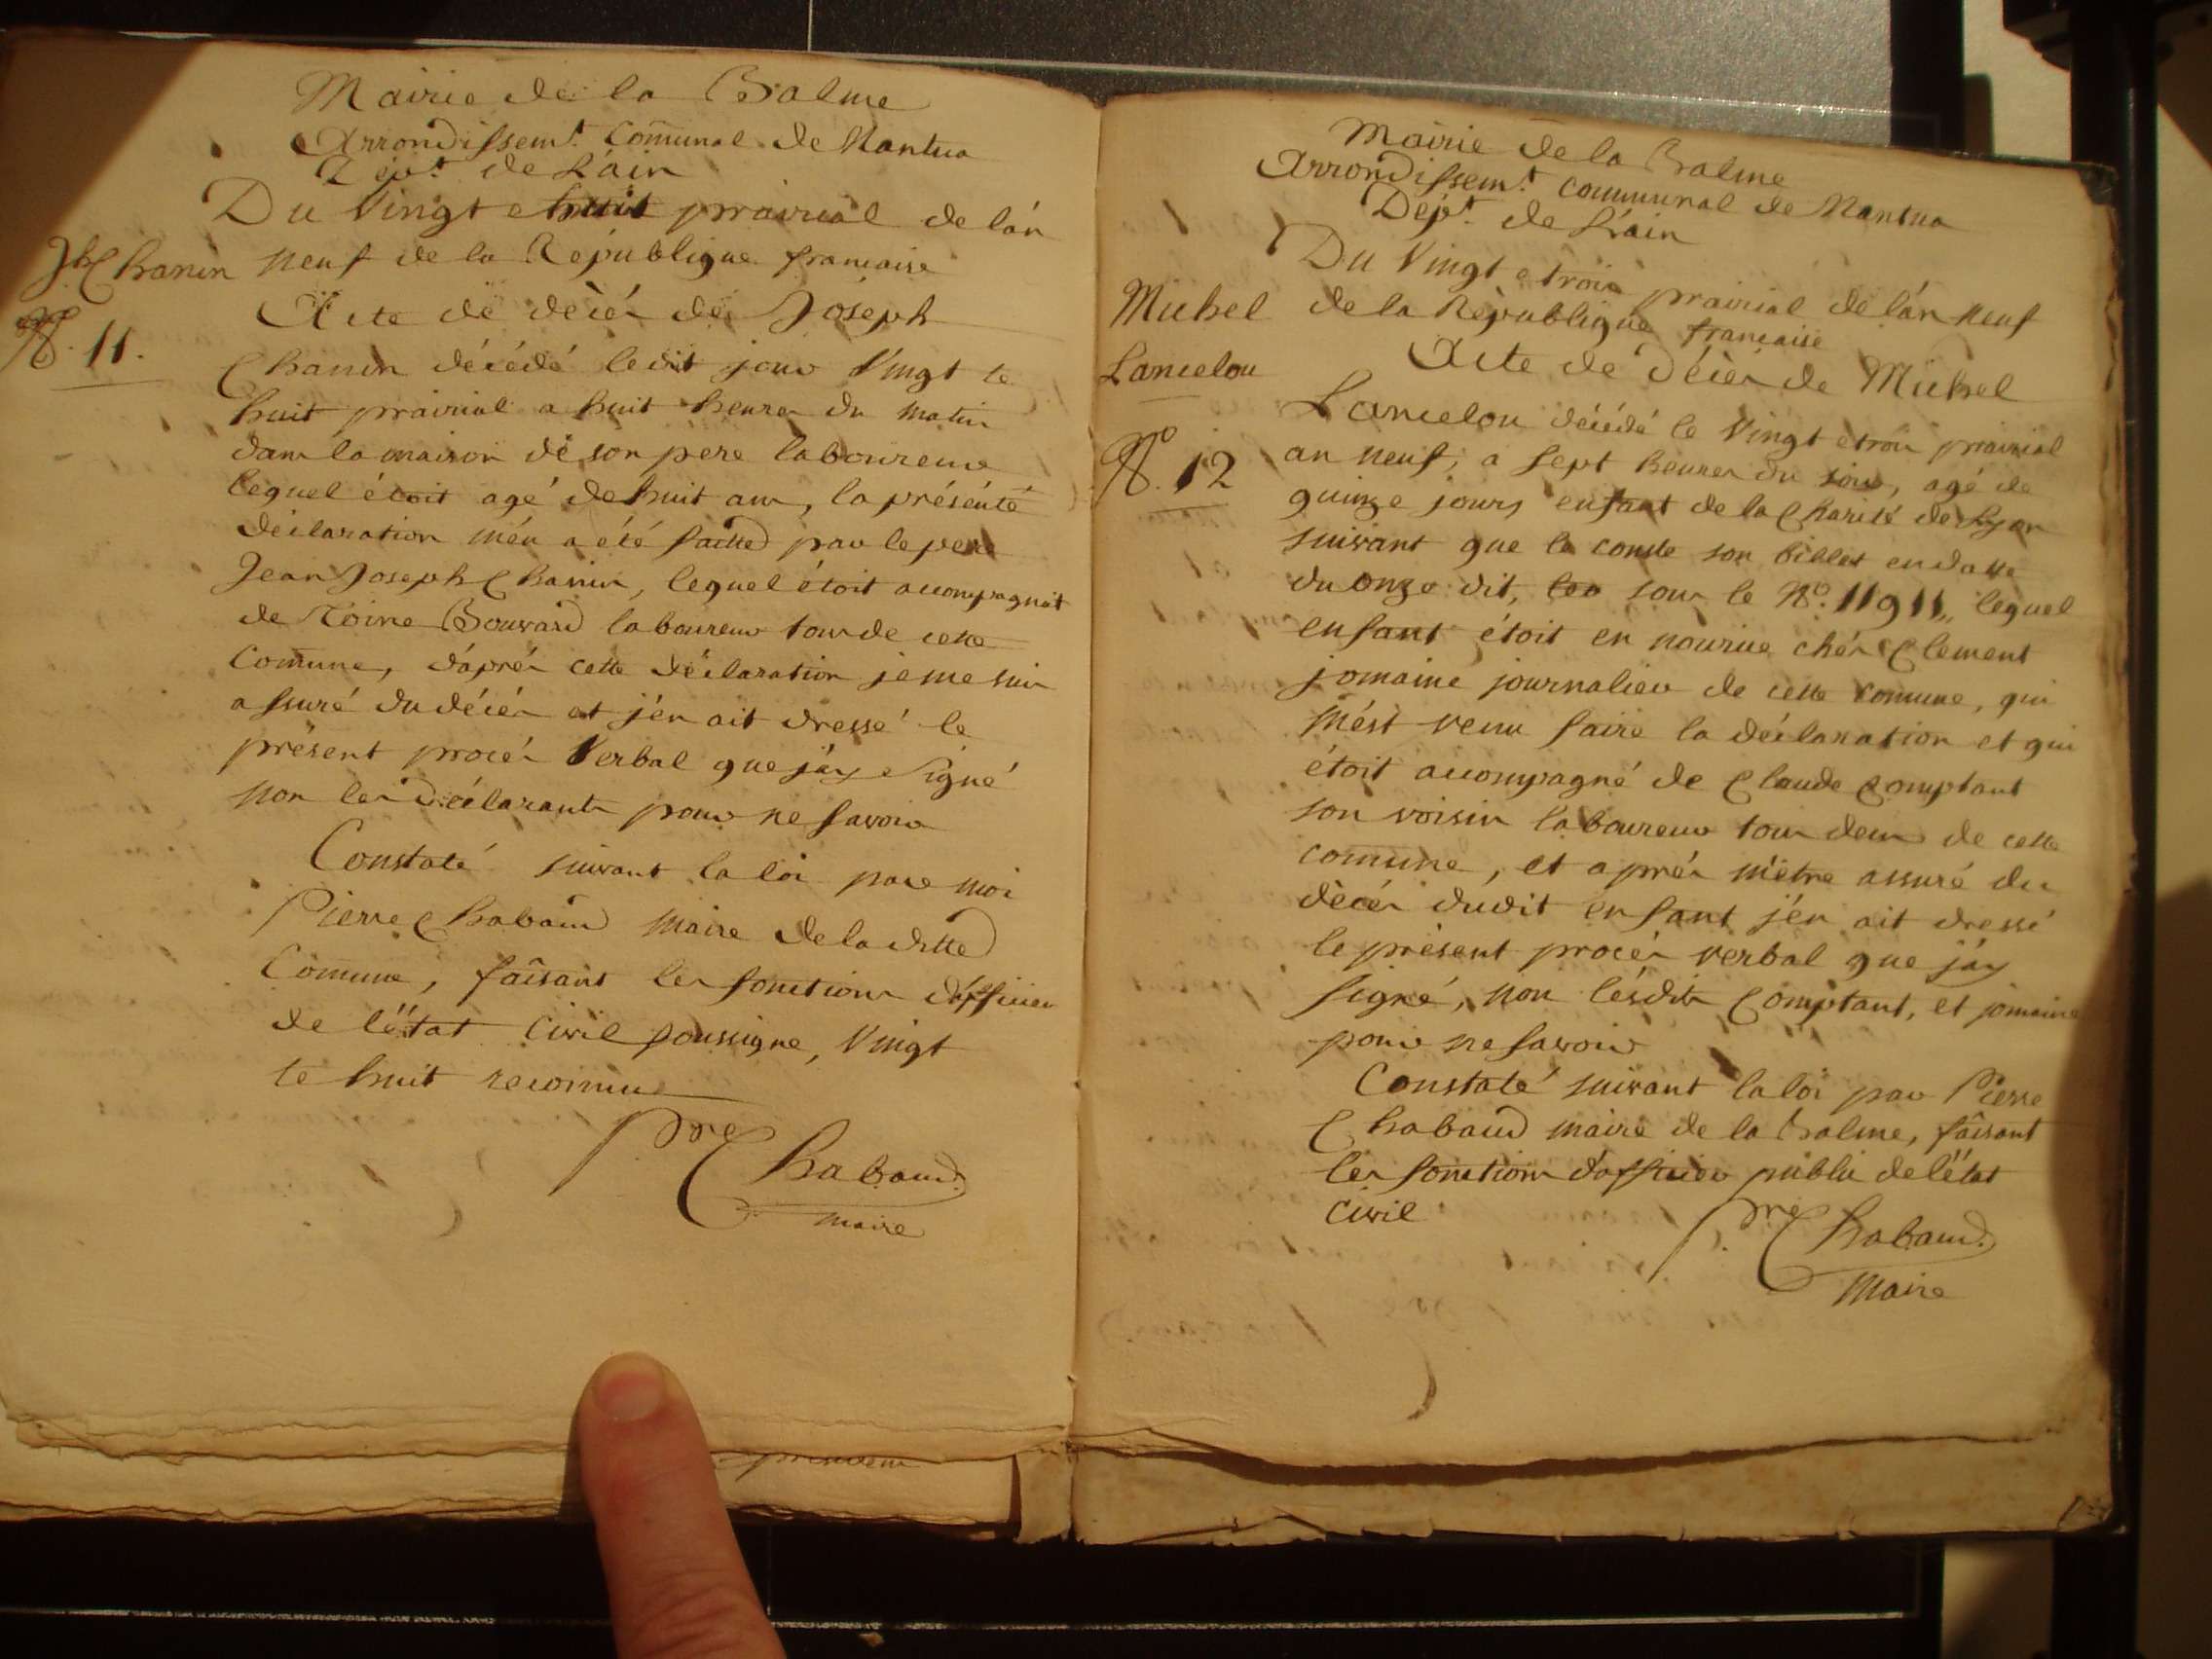 Mairie de la Balme
Arrondissemt. Comunal de Nantua
Dépt. de L'ain
Du Vingt e huit prairial de l'án
Jh. Chanin
neuf de la République francaise
Acte de décés de Joseph
N°. 11.
Chanin décédé ledit jour Vingt te
huit prairial a huit heures du matin
dans la maison de son pere laboureur
lequel étoit agé de huit ans, la présente
déclaration m'en a été faitte par le pere
Jean Joseph Chanin, lequel étoit accompagnét
de Toine Bouvard laboureur tous de cette
Comune, d'aprés cette déclaration je me suis
assuré du décés et j'én ait dressé le
présent procés Verbal que j'áy Signé
non les déclarants pour ne savoir
Constaté suivant la loi pare moi
Pierre Chabaud Maire de la ditte
Comune, faisant les fonctions d'officier
de l'état Civil soussigne, Vingt
te huit reconnu
Pre Chabaud.
maire
Mairie de la Balme
Arrondissemt. Communal de Nantua
Dépt. de L'ain
Du Vingt e trois prairial de l'án neuf
Michel
de la République francaise
Lancelou
Acte de décés de Michel
Lancelou décédé le Vingt e trois prairial
N°. 12
an neuf, a sept heures du soir, agé de
quinze jours enfant de la Charité de Lyon
suivant que le conste son billet en datte
du onze dit, sous le N°. 11911,, lequel
enfant étoit en nourice chés Clement
jomaine journalier de cette Comune, qui
m'ést venu faire la déclaration et qui
étoit accompagné de Claude Comptant
son voisin laboureur tous deux de cette
comune, et aprés m'étre assuré du
décés dudit enfant j'én ait dressé
le présent procés verbal que j'áy
signé, non lésdits Comptant, et jomaine
pour ne savoir
Constaté suivant la loi par Pierre
Chabaud maire de la Balme, faisant
les fonctions d'officier public de l'état
Civil
Pre Chabaud.
Maire